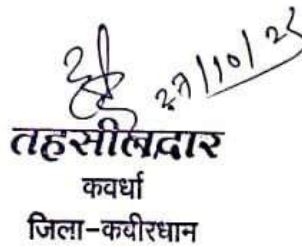 27/10/25
तहसीलदार
कवर्धा
जिला-कबीरधाम